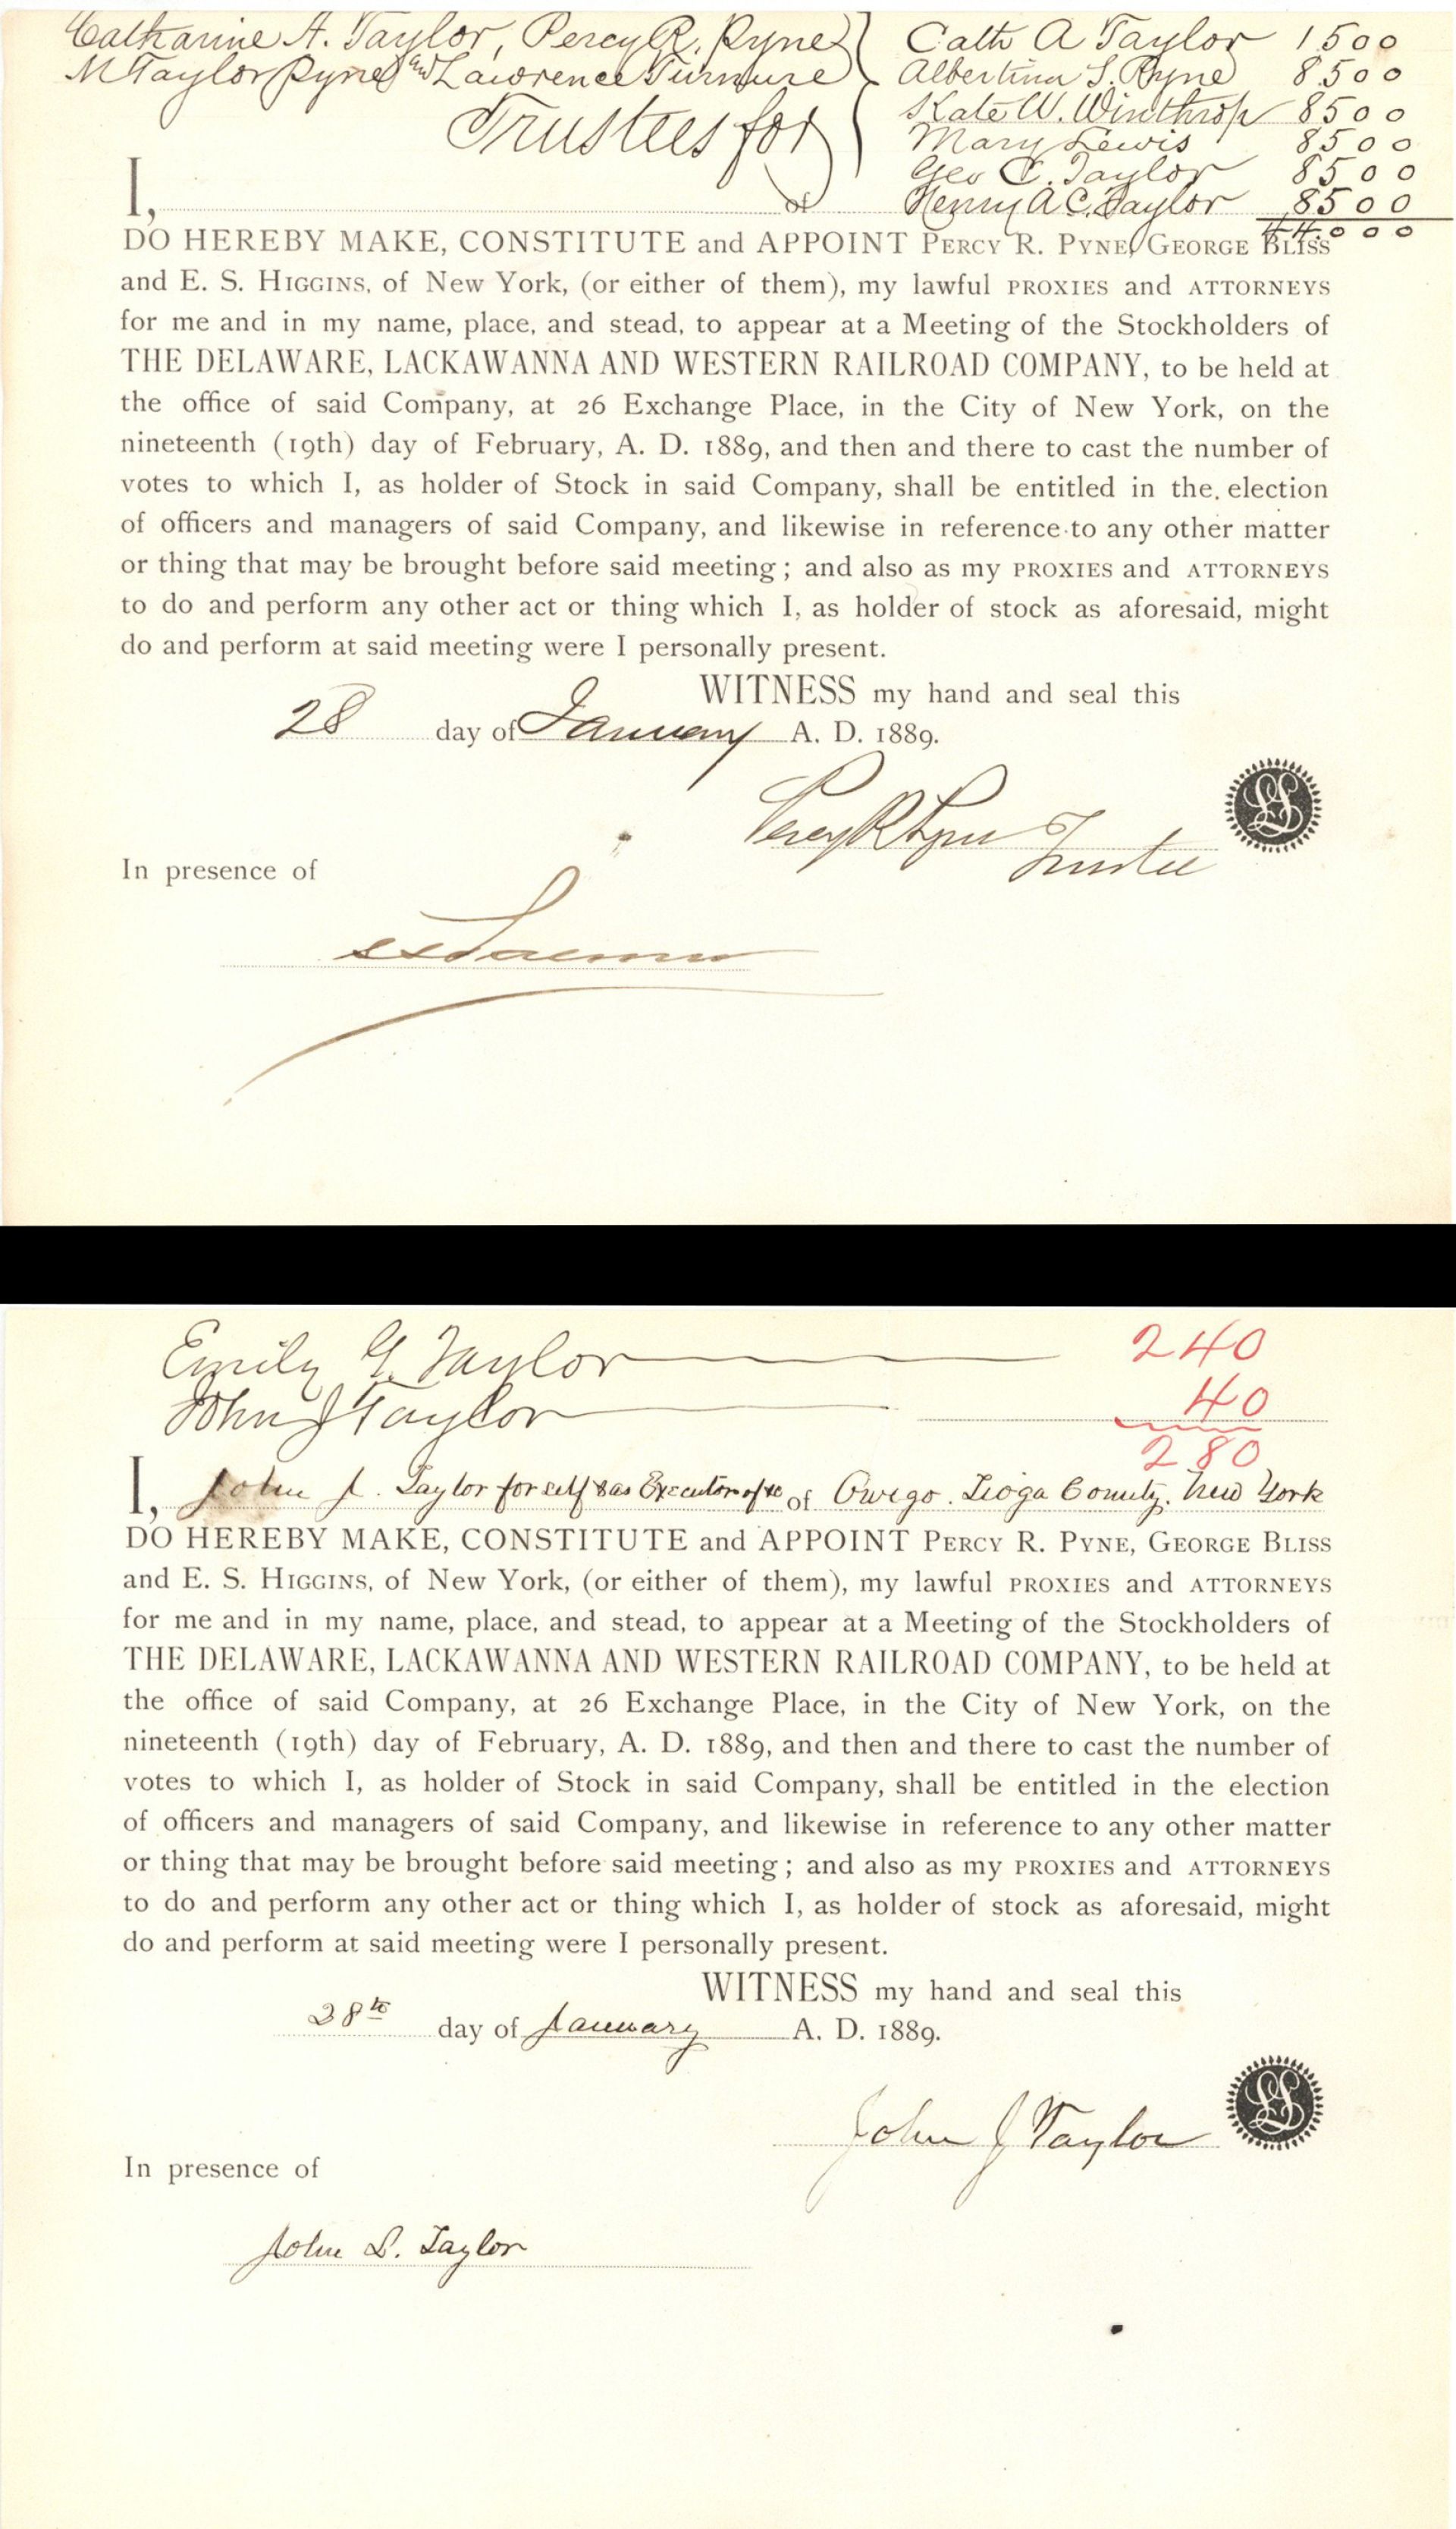 Catharine A. Taylor, Percy R. Pyne
M Taylor Pyne and Lawrence Turnure
Trustees for
Cath A Taylor 1500
Albertina S. Pyne 8500
Kate W. Winthrop 8500
Mary Lewis 8500
Geo C. Taylor 8500
Henry A C. Taylor 8500
44000
I, of
DO HEREBY MAKE, CONSTITUTE and APPOINT PERCY R. PYNE, GEORGE BLISS
and E. S. HIGGINS, of New York, (or either of them), my lawful PROXIES and ATTORNEYS
for me and in my name, place, and stead, to appear at a Meeting of the Stockholders of
THE DELAWARE, LACKAWANNA AND WESTERN RAILROAD COMPANY, to be held at
the office of said Company, at 26 Exchange Place, in the City of New York, on the
nineteenth (19th) day of February, A. D. 1889, and then and there to cast the number of
votes to which I, as holder of Stock in said Company, shall be entitled in the election
of officers and managers of said Company, and likewise in reference to any other matter
or thing that may be brought before said meeting; and also as my PROXIES and ATTORNEYS
to do and perform any other act or thing which I, as holder of stock as aforesaid, might
do and perform at said meeting were I personally present.
WITNESS my hand and seal this
28 day of January A. D. 1889.
Percy R Pyne
Trustee
LS
In presence of
Emily G. Taylor 240
John J Taylor 40
280
I, John J. Taylor for self & as Executor of &c of Owego. Tioga County. New York
DO HEREBY MAKE, CONSTITUTE and APPOINT PERCY R. PYNE, GEORGE BLISS
and E. S. HIGGINS, of New York, (or either of them), my lawful PROXIES and ATTORNEYS
for me and in my name, place, and stead, to appear at a Meeting of the Stockholders of
THE DELAWARE, LACKAWANNA AND WESTERN RAILROAD COMPANY, to be held at
the office of said Company, at 26 Exchange Place, in the City of New York, on the
nineteenth (19th) day of February, A. D. 1889, and then and there to cast the number of
votes to which I, as holder of Stock in said Company, shall be entitled in the election
of officers and managers of said Company, and likewise in reference to any other matter
or thing that may be brought before said meeting; and also as my PROXIES and ATTORNEYS
to do and perform any other act or thing which I, as holder of stock as aforesaid, might
do and perform at said meeting were I personally present.
WITNESS my hand and seal this
28th day of January A. D. 1889.
John J Taylor
LS
In presence of
John L. Taylor